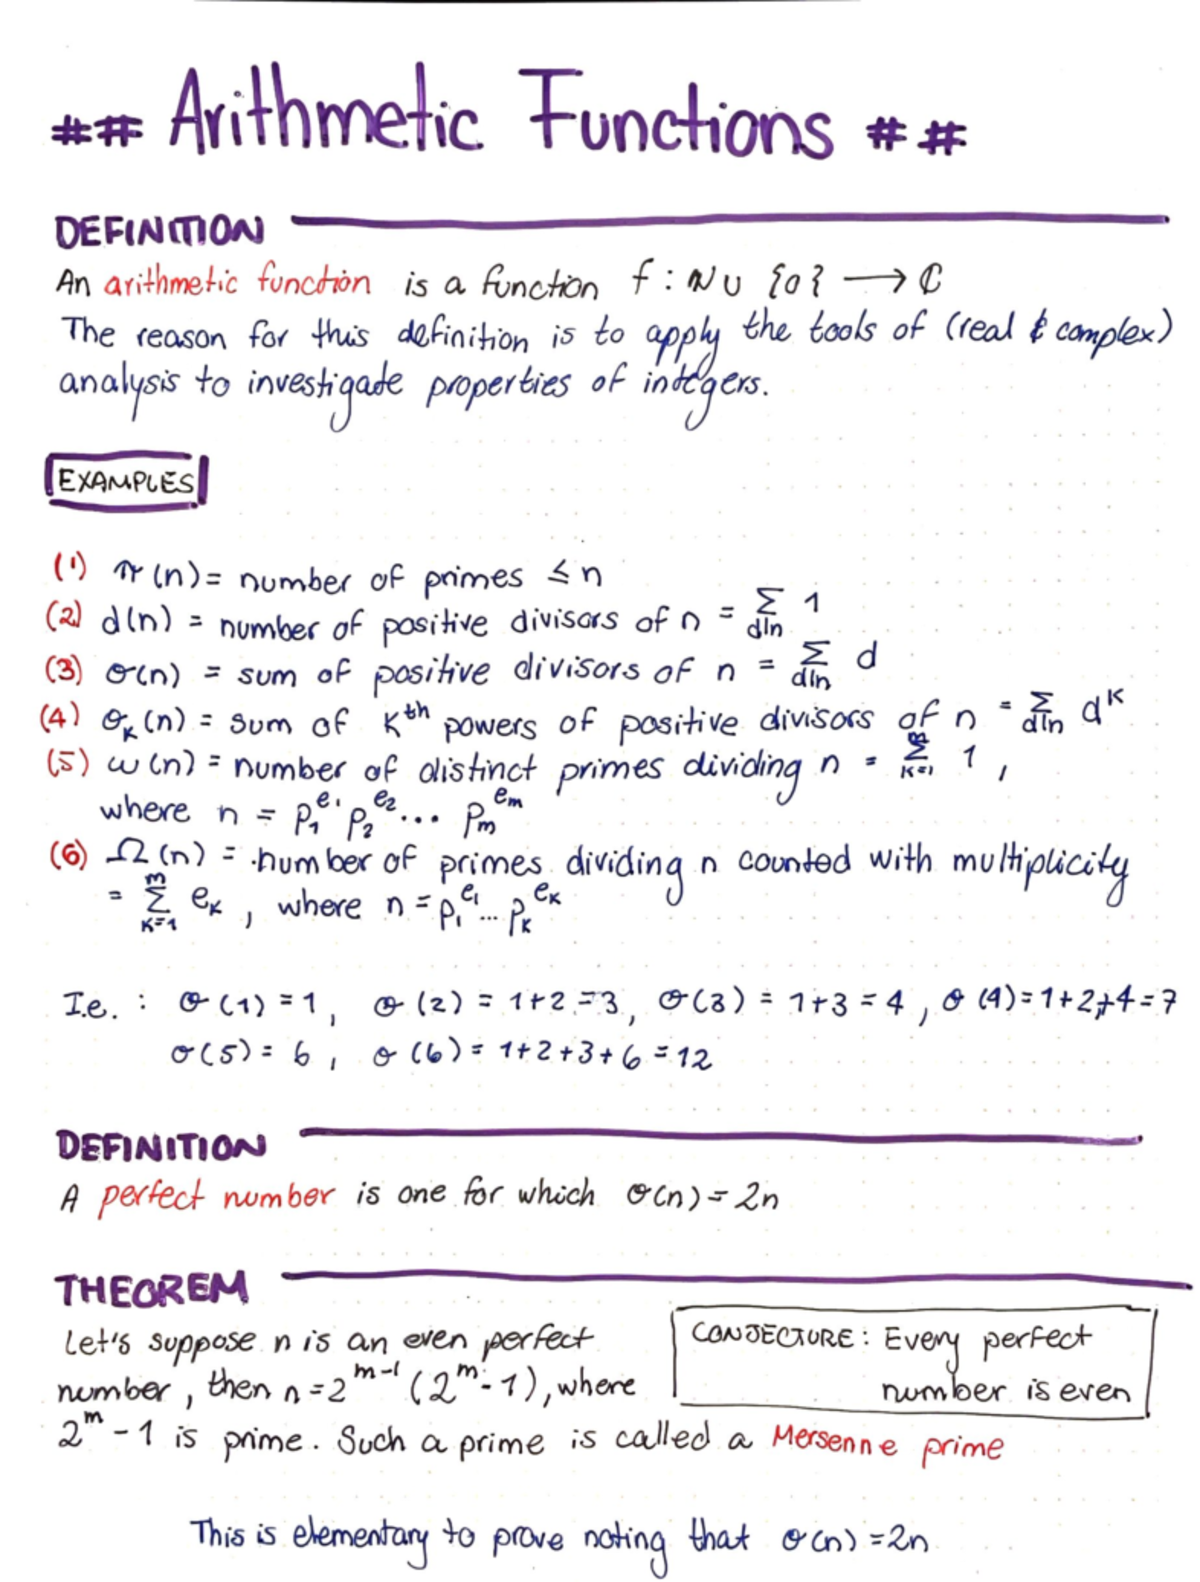 ## Arithmetic Functions ##
DEFINITION
An arithmetic function is a function f : ℕ ∪ {0} ⟶ ℂ
The reason for this definition is to apply the tools of (real & complex)
analysis to investigate properties of integers.
EXAMPLES
(1) π(n) = number of primes ≤ n
(2) d(n) = number of positive divisors of n = Σ_{d|n} 1
(3) σ(n) = sum of positive divisors of n = Σ_{d|n} d
(4) σ_k(n) = sum of k^th powers of positive divisors of n = Σ_{d|n} d^k
(5) ω(n) = number of distinct primes dividing n = Σ_{k=1}^{m} 1 ,
where n = p_1^{e_1} p_2^{e_2} ... p_m^{e_m}
(6) Ω(n) = number of primes dividing n counted with multiplicity
= Σ_{k=1}^{m} e_k , where n = p_1^{e_1} ... p_k^{e_k}
I.e. : σ(1) = 1, σ(2) = 1+2 = 3, σ(3) = 1+3 = 4, σ(4) = 1+2+4 = 7,
σ(5) = 6, σ(6) = 1+2+3+6 = 12
DEFINITION
A perfect number is one for which σ(n) = 2n
THEOREM
Let's suppose n is an even perfect
number, then n = 2^{m-1} (2^m - 1), where
2^m - 1 is prime. Such a prime is called a Mersenne prime
CONJECTURE: Every perfect
number is even
This is elementary to prove noting that σ(n) = 2n